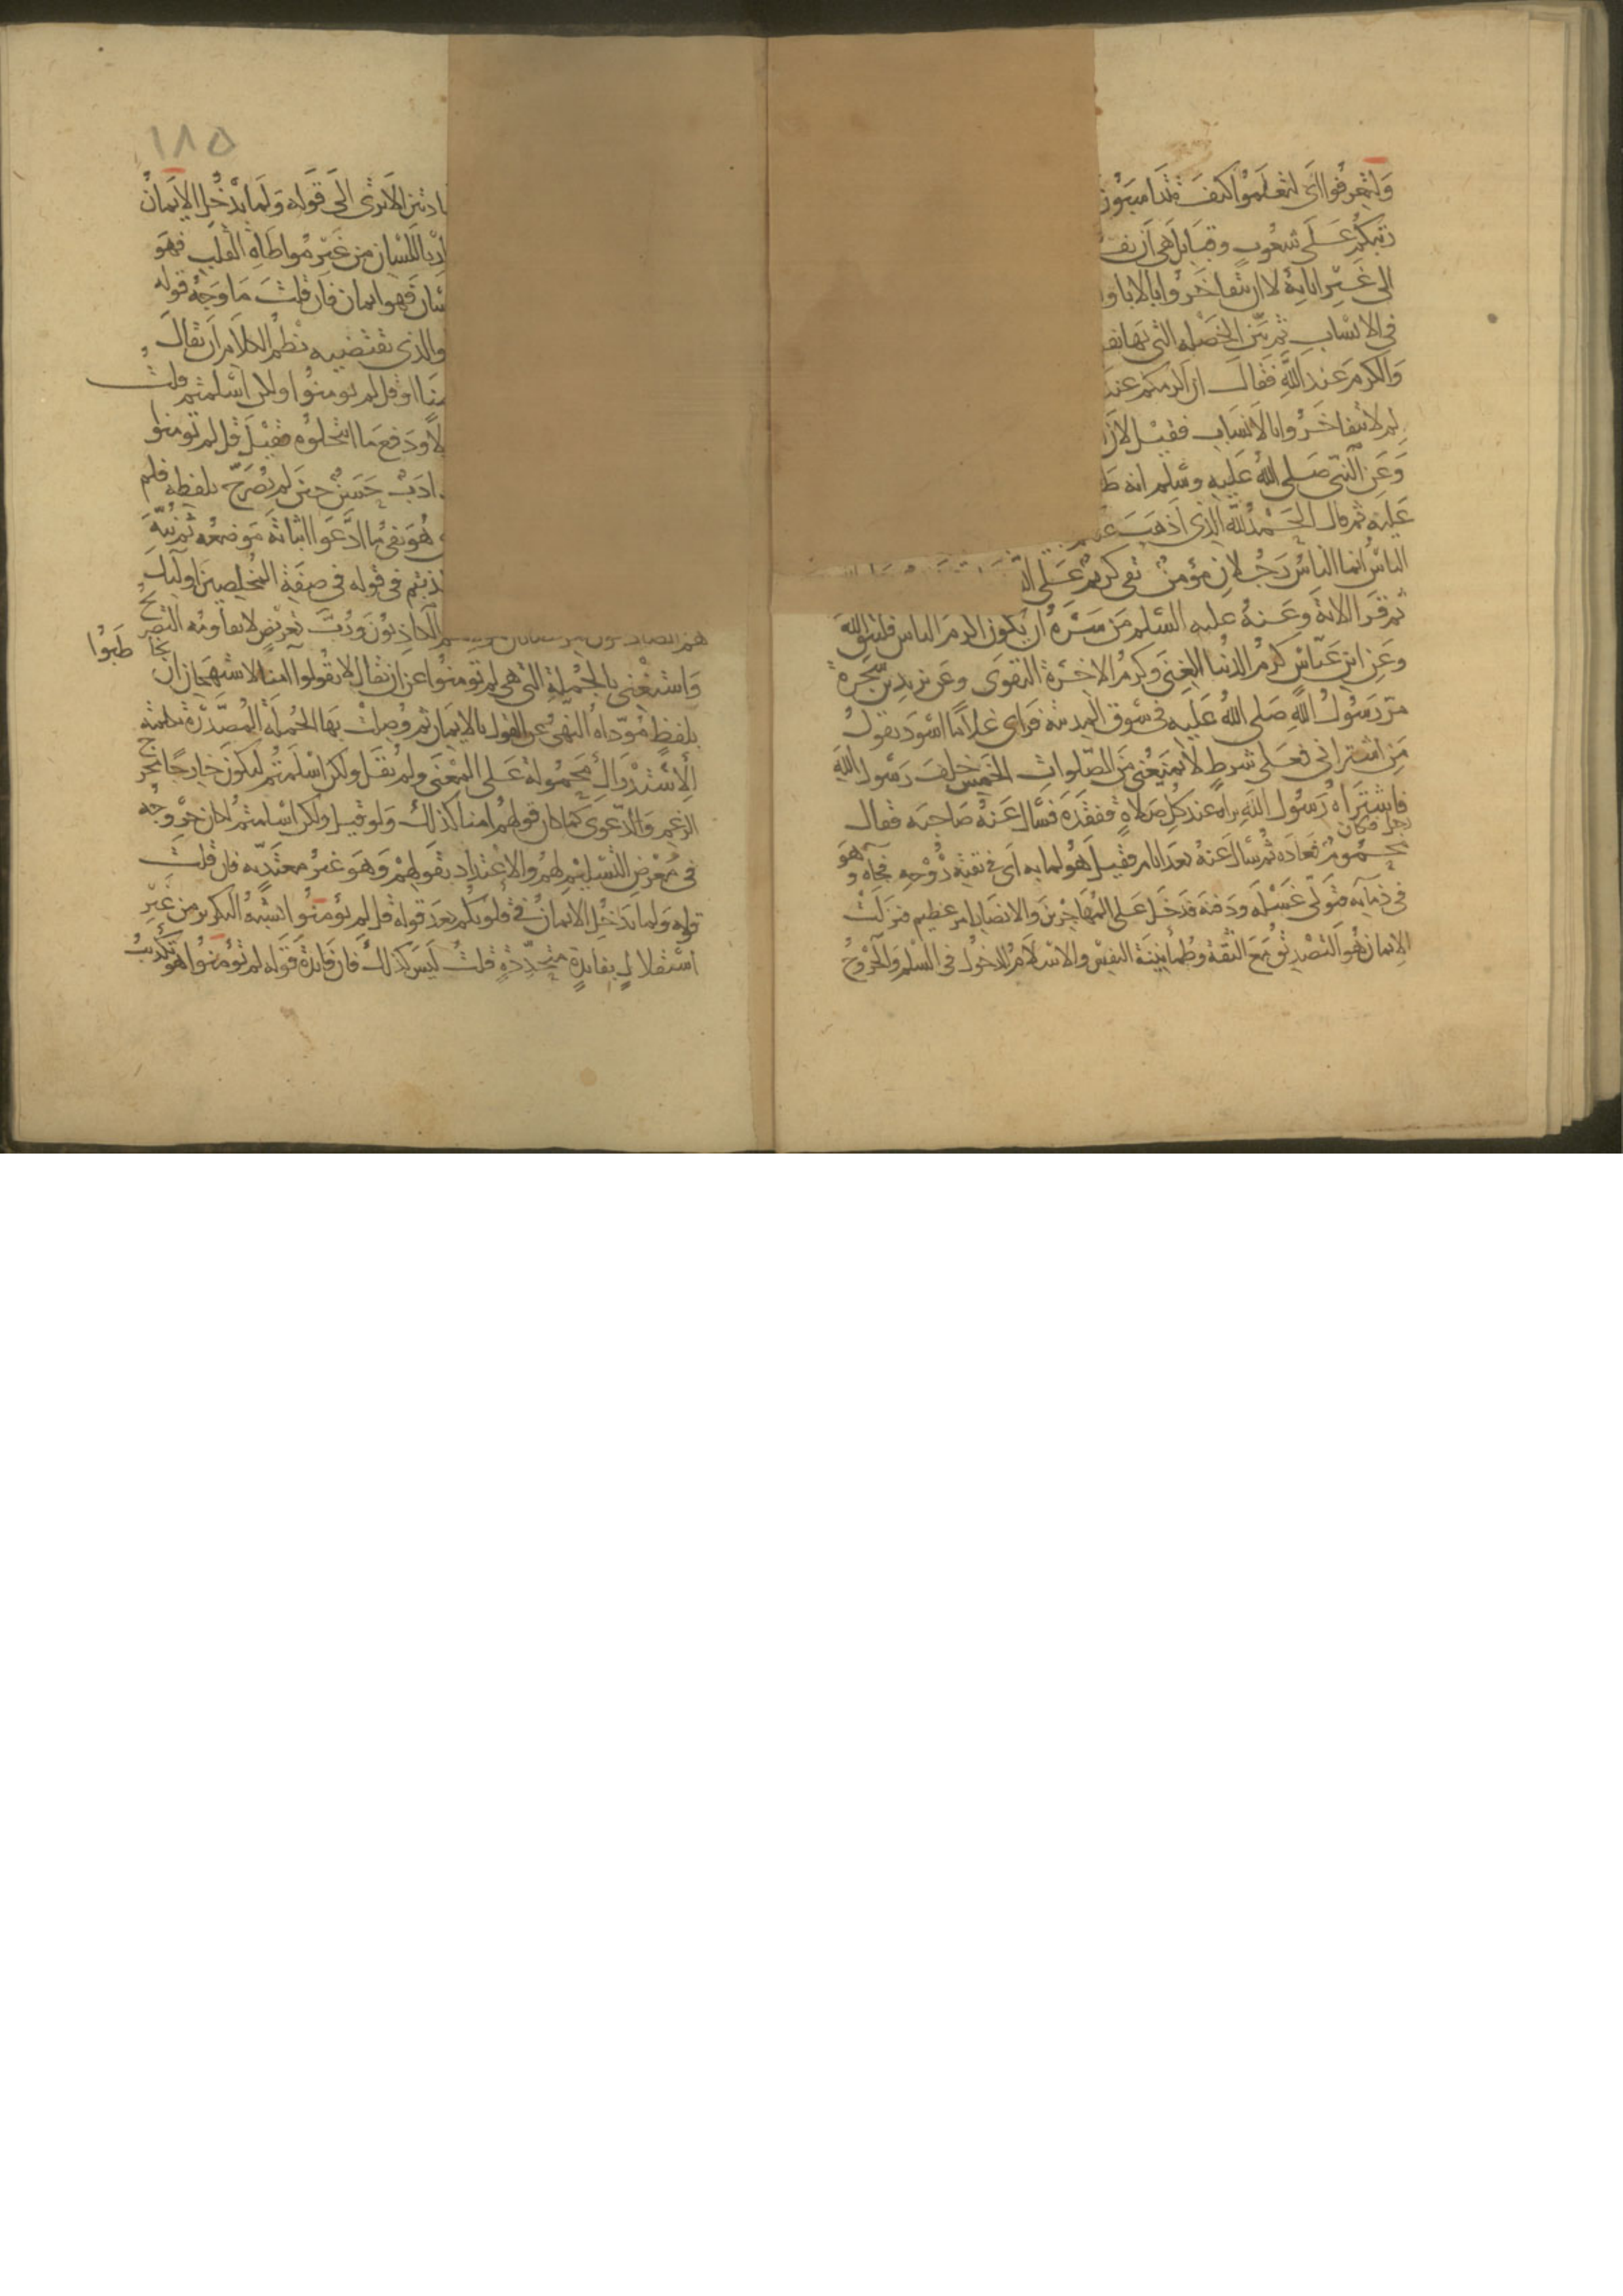 ولتعرفوا اى لتعلموا كيف تتناسبون
رتبكم على شعوب وقبايل هى ان يعر
الى غير ابايه لا ان تتفاخروا بالابا وا
فى الانساب ثم بين الخصله التى بها يف
والكرم عند الله فقال ان اكرمكم عند
لم لا نتفاخروا بالانساب فقيل لان
وعن النبى صلى الله عليه وسلم انه ط
عليه ثم قال الحمد لله الذى اذهب عنكم
الناس انما الناس رجلان مؤمن تقى كريم على
ثم قرا الاية وعنه عليه السلم من سره ان يكون اكرم الناس فليتق الله
وعن ابن عباس كرم الدنيا الغنى وكرم الاخرة التقوى وعن يزيد بن شجرة
مر رسول الله صلى الله عليه فى سوق المدينة فراى غلاما اسود يقول
من اشترانى فعلى شرط لا يمنعنى من الصلوات الخمس خلف رسول الله
فاشتراه رجل فكان رسول الله يراه عند كل صلاة ففقده فسال عنه صاحبه فقال
محموم فعاده ثم سال عنه بعد ايام فقيل هو لما به اى فى بقية روحه فجاه وهو
فى ذمايه فتولى غسله ودفنه فدخل على المهاجرين والانصار امر عظيم فنزلت
الايمان هو التصديق مع الثقة وطمانينة النفس والاسلام الدخول فى السلم والخروج
١٨٥
ادتين الا ترى الى قوله ولما يدخل الايمان
باللسان من غير مواطاة القلب فهو
فهو ايمان فان قلت ما وجه قوله
والذى يقتضيه نظم الكلام ان يقال
او قل لم تومنوا ولكن اسلمتم قلت
ودفع ما انتحلوه فقيل قل لم تومنوا
ادب حسن حين لم يصرح بلفظه فلم
هو نفى ما ادعوا اثباته موضعه ثم نبه
فى قوله فى صفة المخلصين اوليك
هم الصادقون الكاذبون ورب تعريض لا يقاومه التصريح
واستغنى بالجملة التى هى لم تومنوا عن ان يقال لا تقولوا امنا لاستهجان ان يخاطبوا
بلفظ موداه النهى عن القول بالايمان ثم وصلت بها الجملة المصدرة بكلمة
الاستدراك محمولة على المعنى ولم يقل ولكن اسلمتم ليكون خارجا مخرج
الزعم والدعوى كما كان قولهم امنا كذلك ولو قيل ولكن اسلمتم لكان خروجه
فى معرض التسليم لهم والاعتداد بقولهم وهو غير معتد به فان قلت
قوله ولما يدخل الايمان فى قلوبكم بعد قوله قل لم تؤمنوا يشبه التكرير من غير
استقلال بفايدة متجددة قلت ليس كذلك فان فايدة قوله لم تؤمنوا هو تكذيب